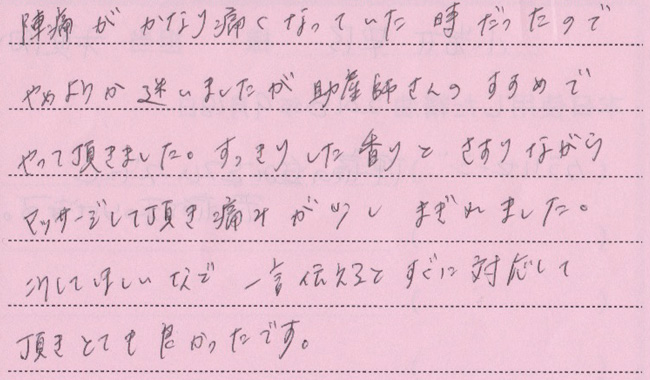 陣痛がかなり痛くなっていた時だったので
やめようか迷いましたが助産師さんのすすめで
やって頂きました。すっきりした香りとさすりながら
マッサージして頂き痛みが少しまぎれました。
こうしてほしいなど一言伝えるとすぐに対応して
頂きとても良かったです。